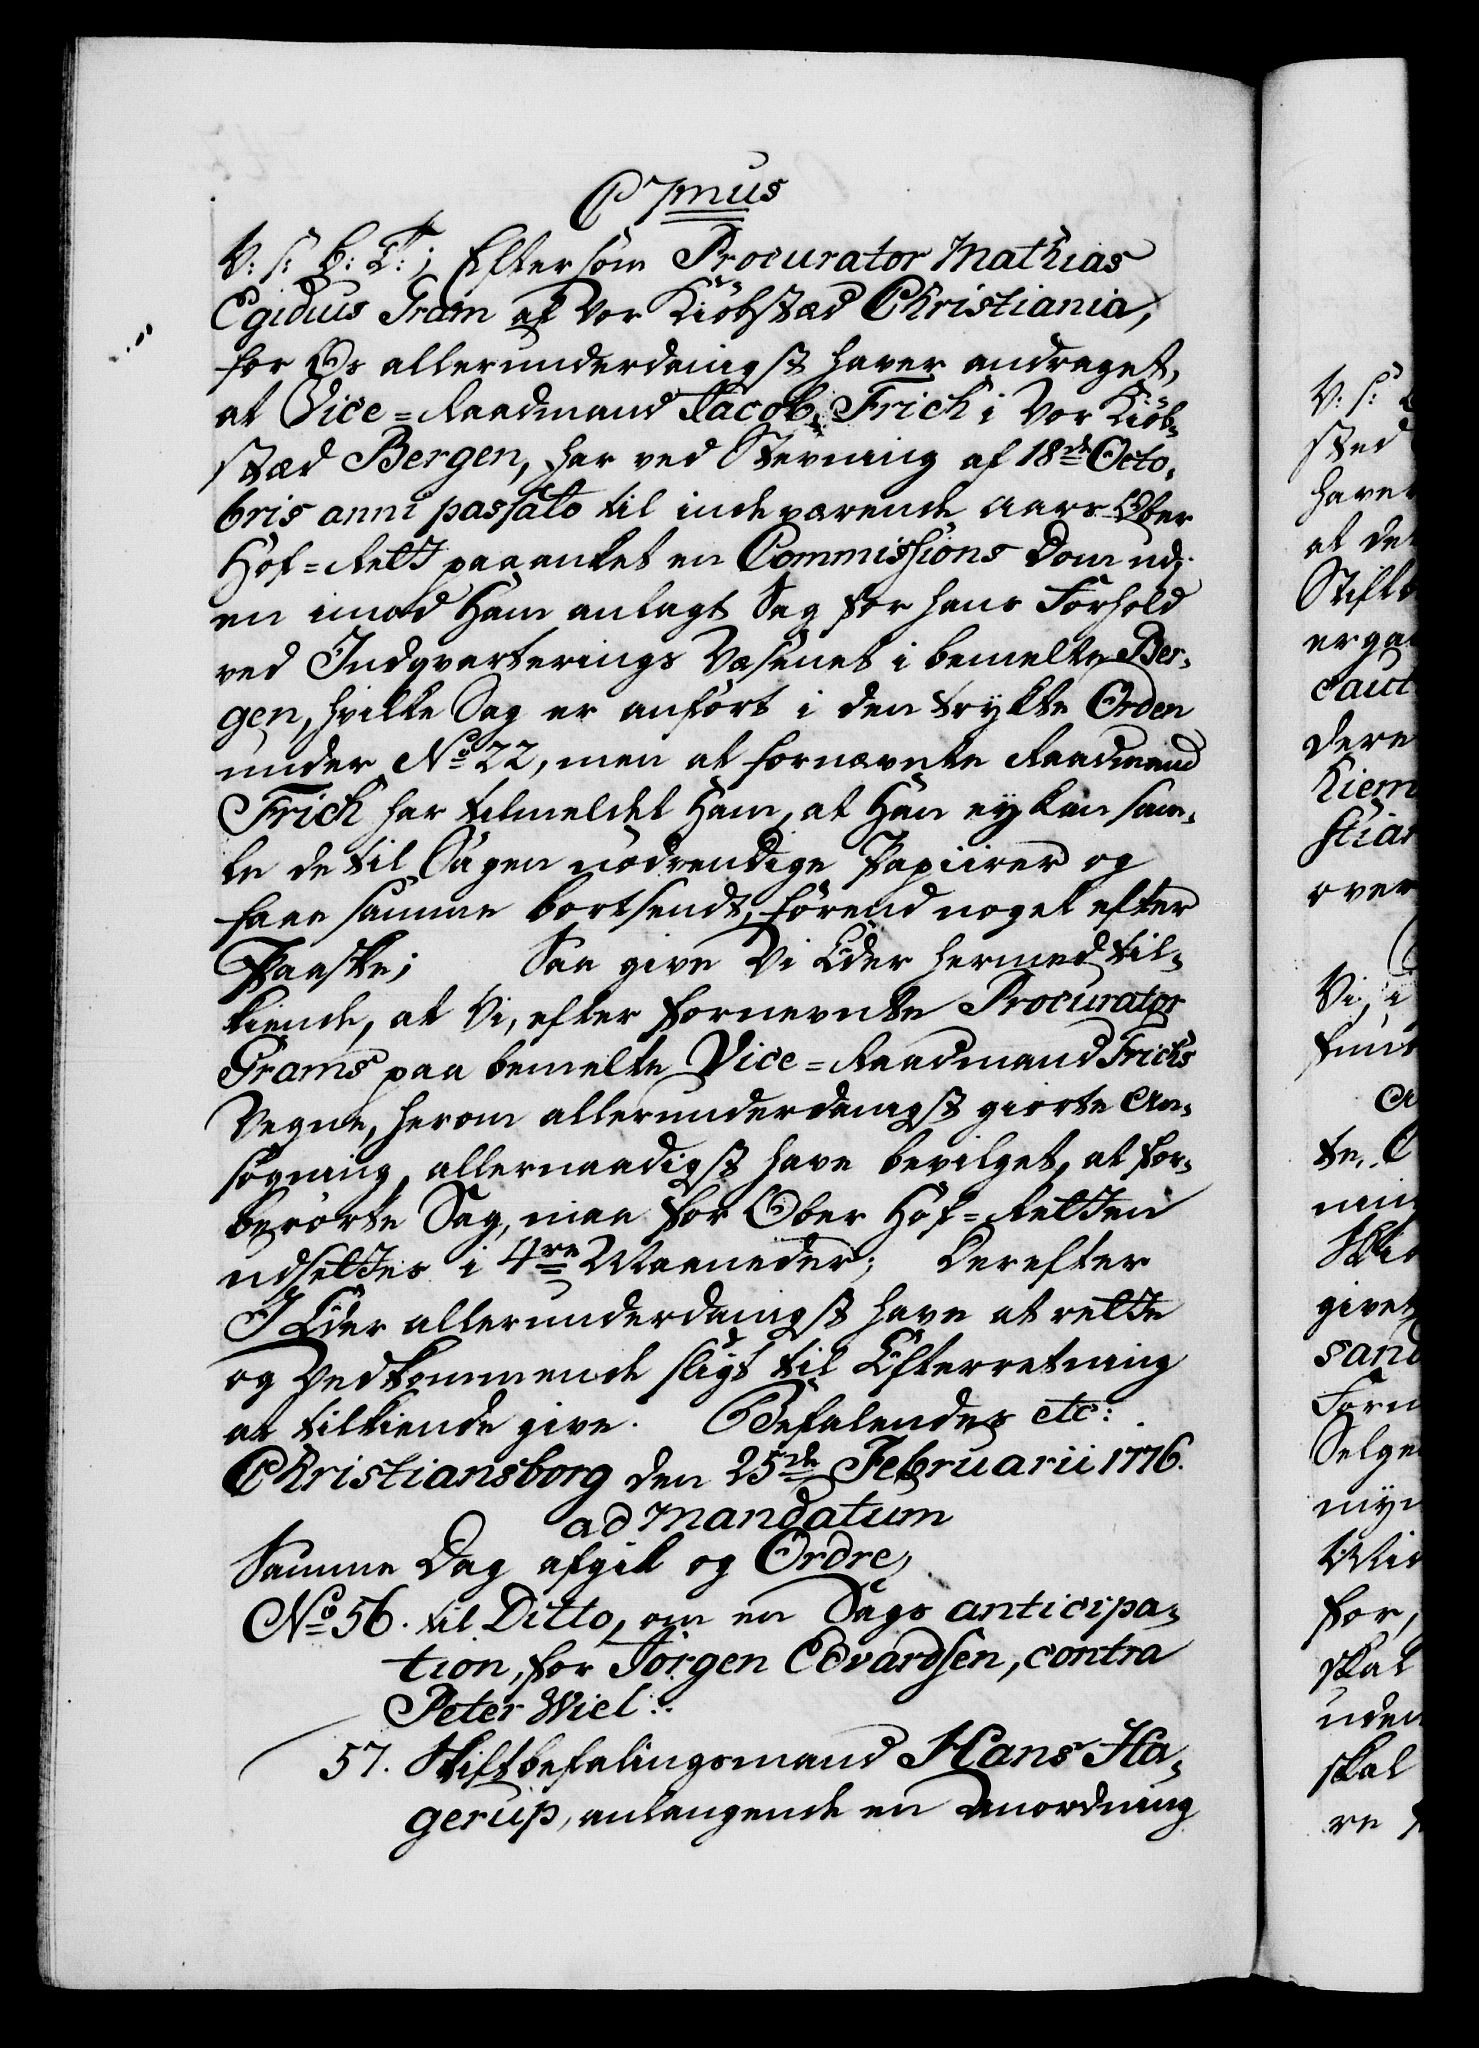 C 7mus
V: S: G: T:; Eftersom Procurator Mathias
Egidius Gram af Vor Kiöbstæd Christiania,
for Os allerunderdanigst haver andraget,
at Vice=Raadmand Jacob Frich i Vor Kiöb-
stæd Bergen, har ved Stevning af 18de Octo-
bris anni passato til indeværende Aars Ober
Hof=Rett paaanket en Commissions Dom udi
en imod Ham anlagt Sag for hans Forhold
ved Indqvarterings Væsenet i bemelte Ber-
gen, hvilke Sag er anfört i den trykte Orden
under No 22, men at fornævnte Raadmand
Frich har tilmeldet Ham, at Han ey kan sam-
le de til Sagen nödvendige Papiirer og
faae samme bortsendt, förend noget efter
Paaske; Saa give Vi Eder hermed til-
kiende, at Vi, efter fornevnte Procurator
Grams paa bemelte Vice=Raadmand Frichs
Vegne, herom allerunderdanigst giorte An-
sögning, allernaadigst have bevilget, at for-
berörte Sag, maa for Ober Hof=Retten
udsettes i 4re Maaneder; Derefter
I Eder allerunderdanigst have at rette
og Vedkommende sligt til Efterretning
at tilkiende give. Befalendes etc:
Christiansborg den 25de Februarii 1776.
ad Mandatum
Samme Dag afgik og Ordre,
No 56. til Ditto, om en Sags anticipa-
tion, for Jörgen Edvardsen, contra
Peter Wiel.
57. Stiftbefalingsmand Hans Ha-
gerup, anlangende en Anordning